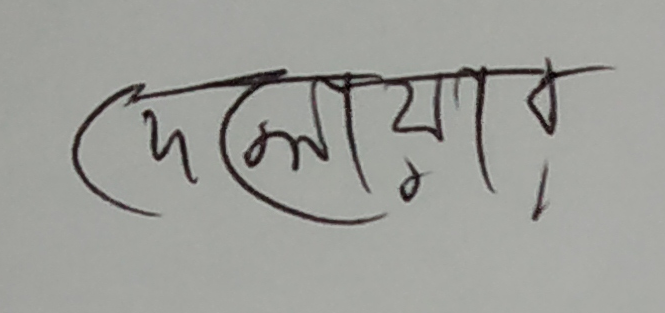 দেলোয়ার